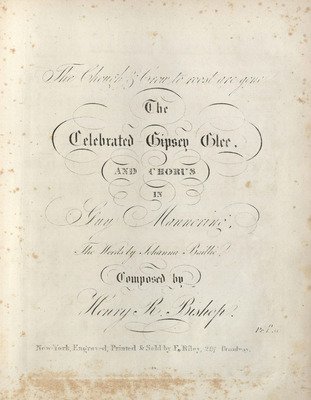 The Chough & Crow to roost are gone
The
Celebrated Gipsey Glee,
AND CHORUS
IN
Guy Mannering,
The Words by Johanna Baillie,
Composed by
Henry R. Bishop.
New-York, Engraved, Printed & Sold by E. Riley,